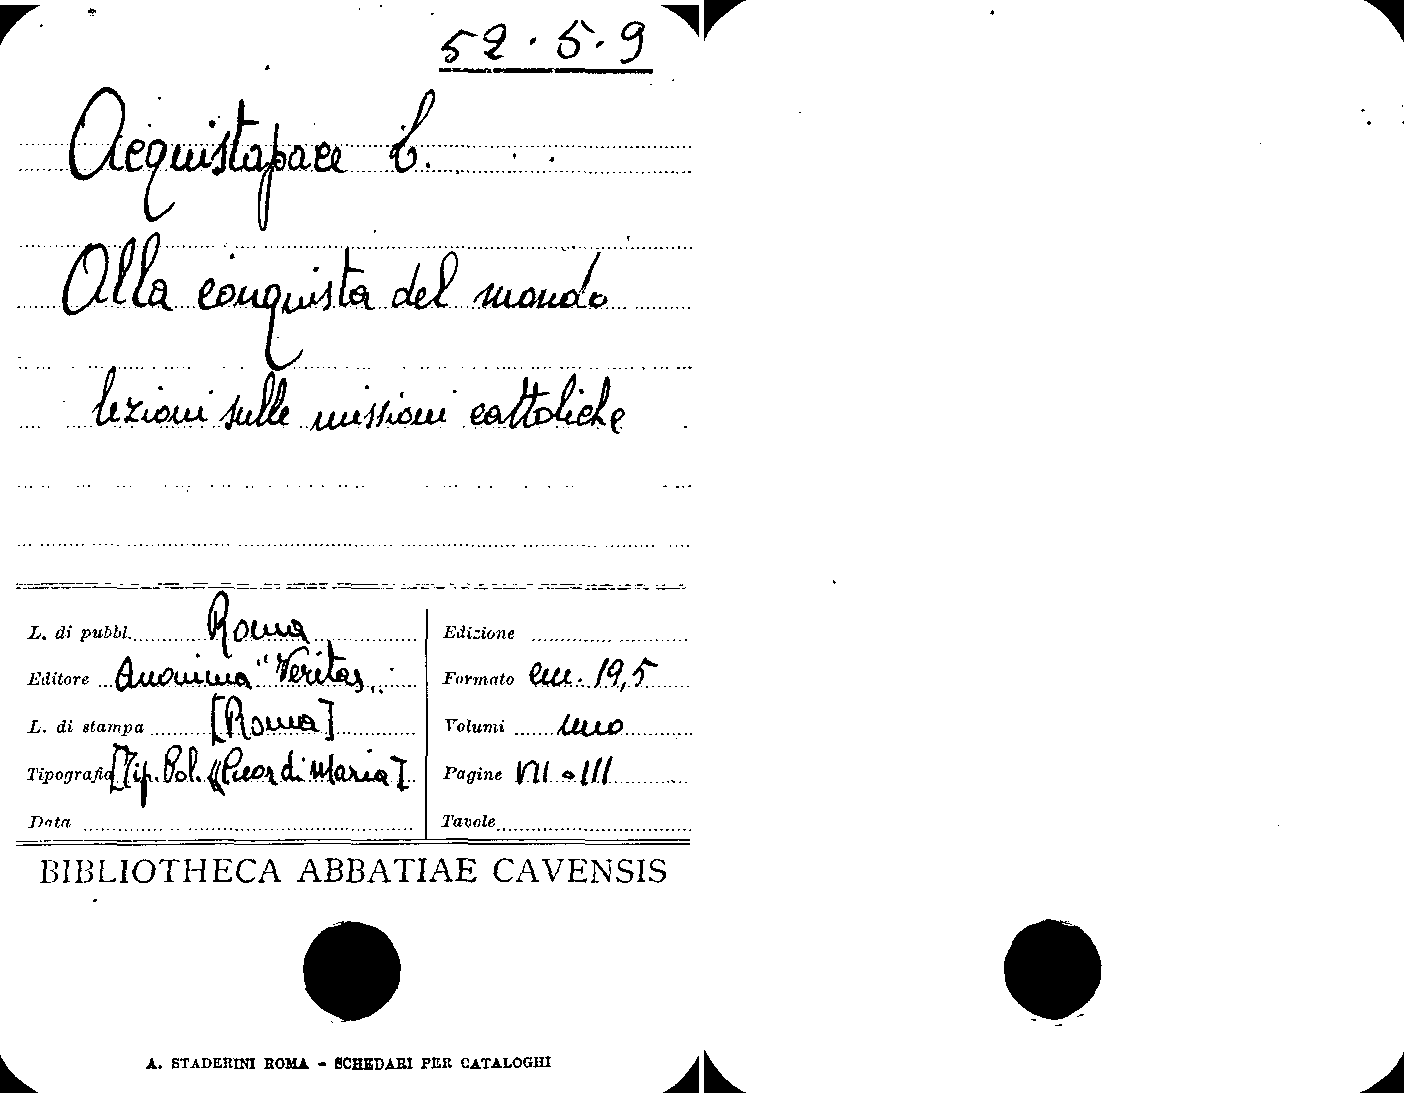 52.5.9
Acquistapace C.
Alla conquista del mondo
lezioni sulle missioni cattoliche
L. di pubbl. Roma
Editore Anonima "Veritas„
L. di stampa [Roma]
Tipografia [Tip. Pol. "Cuor di Maria]
Data
Edizione
Formato cm. 19,5
Volumi uno
Pagine
Tavole
BIBLIOTHECA ABBATIAE CAVENSIS
A. STADERINI ROMA - SCHEDARI PER CATALOGHI